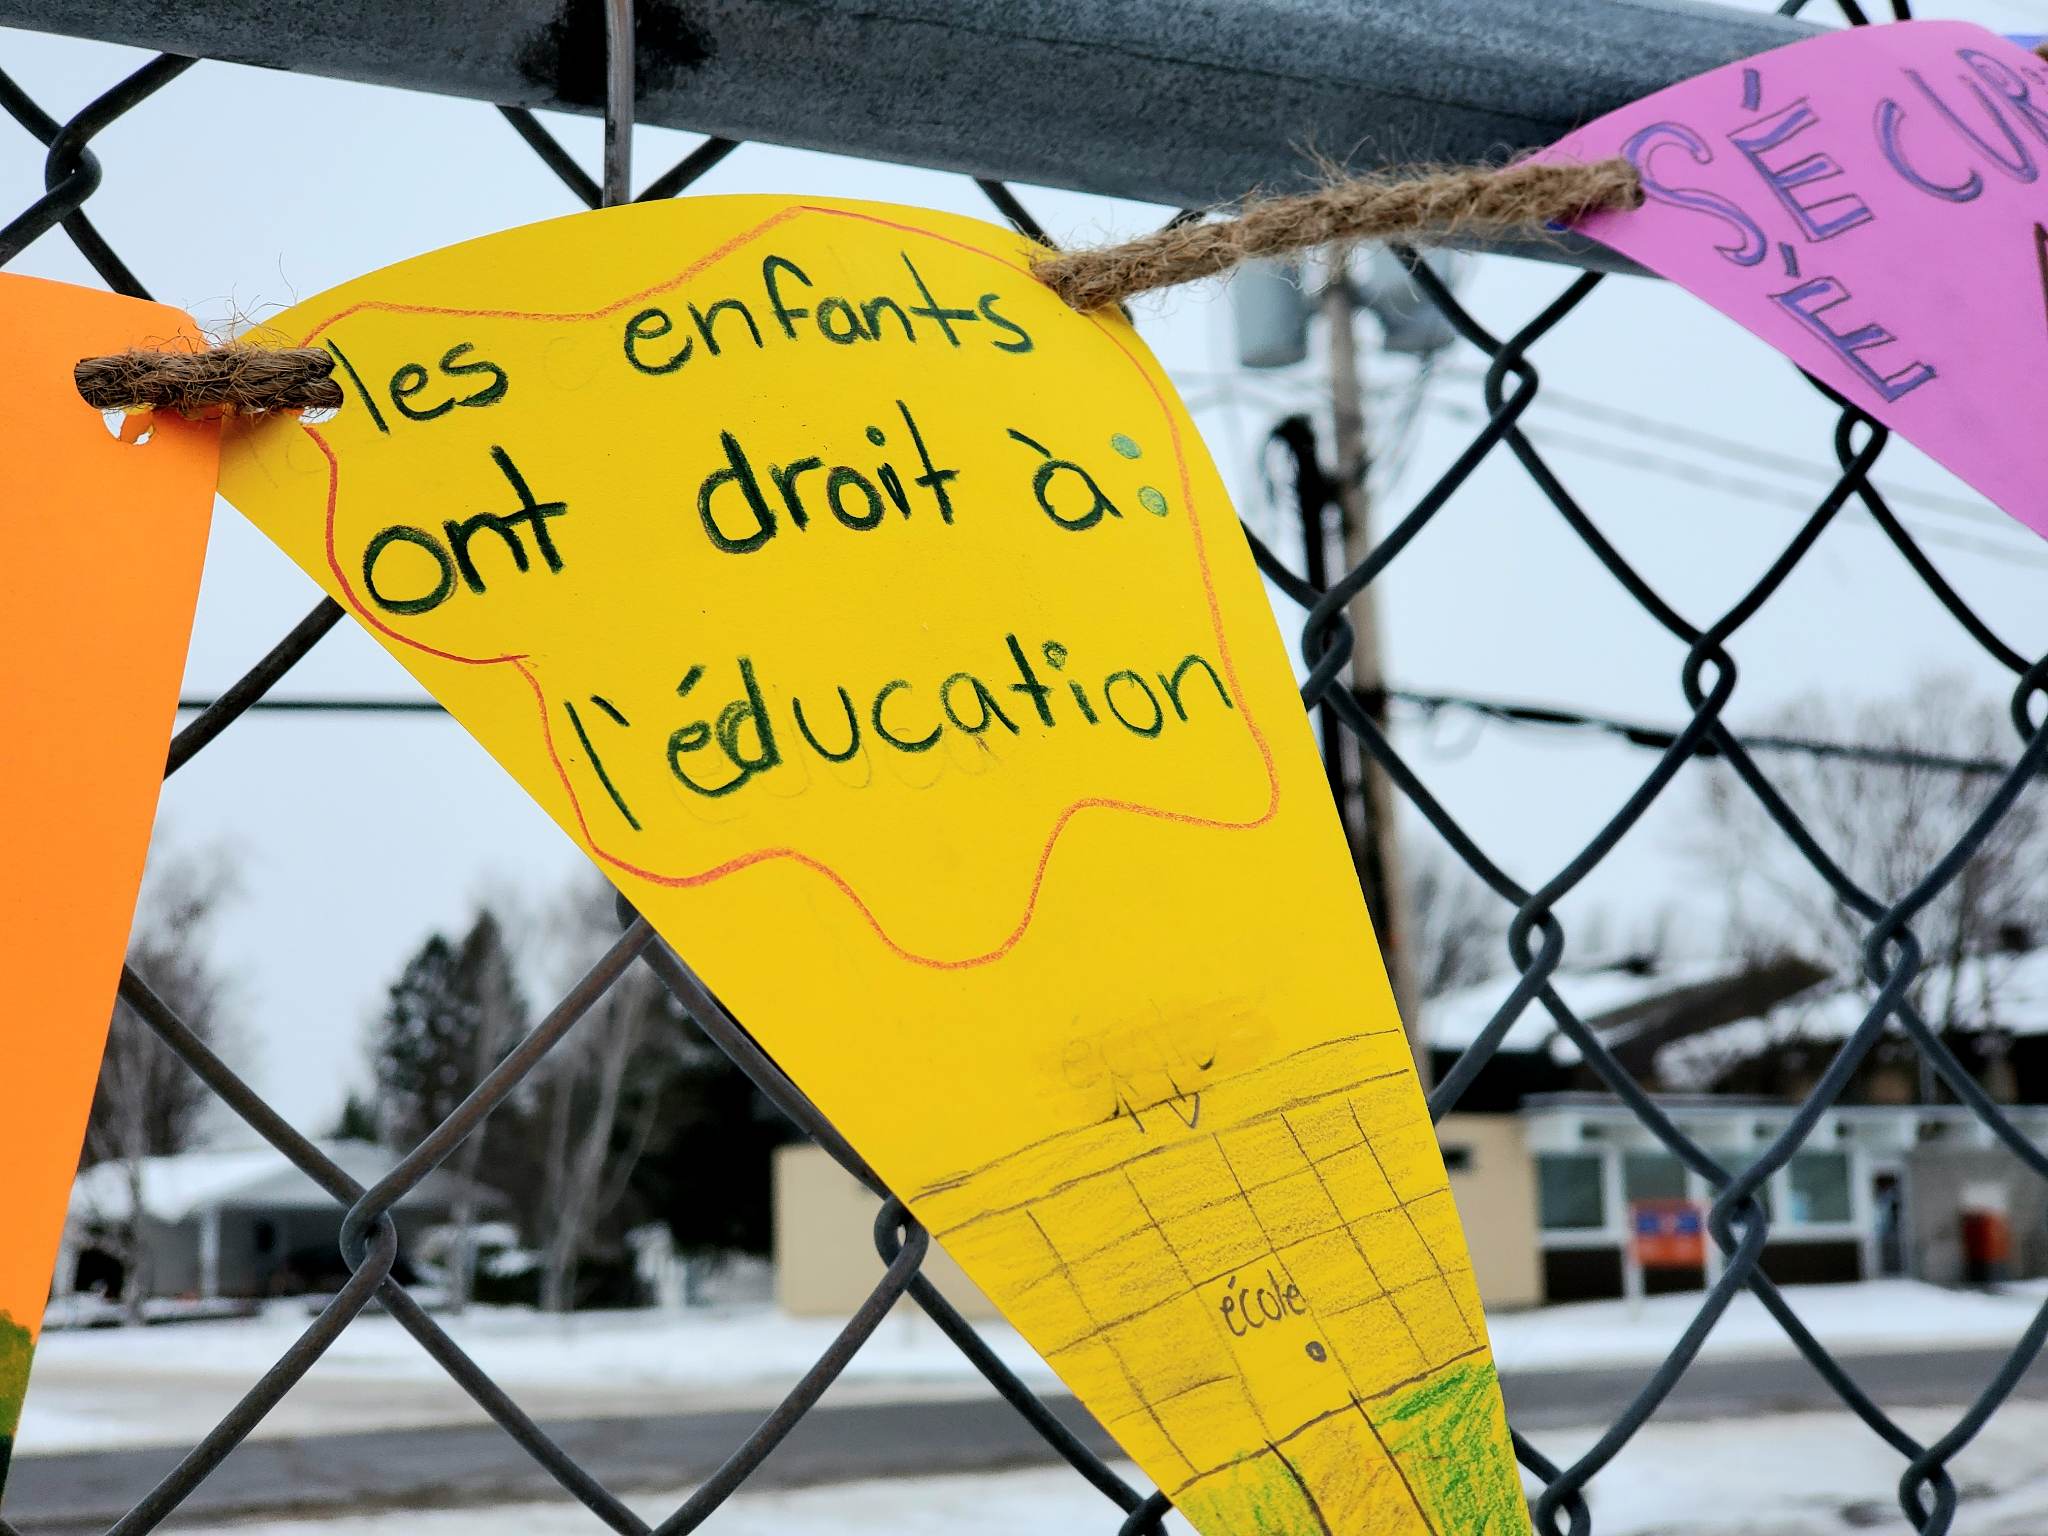 les enfants
ont droit à:
l'éducation
école
SÉCUR
É